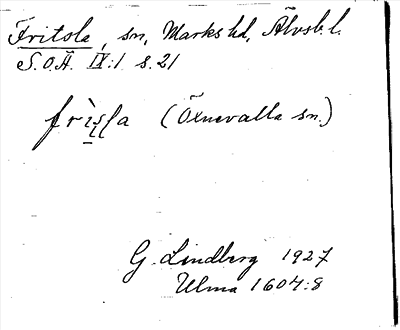 Fritsla, sn, Marks hd, Älvsb. l.
S.O.Ä. IX:1 s. 21
frìsla (Öxnevalla sn.)
G. Lindberg 1927
Ulma 1604:8